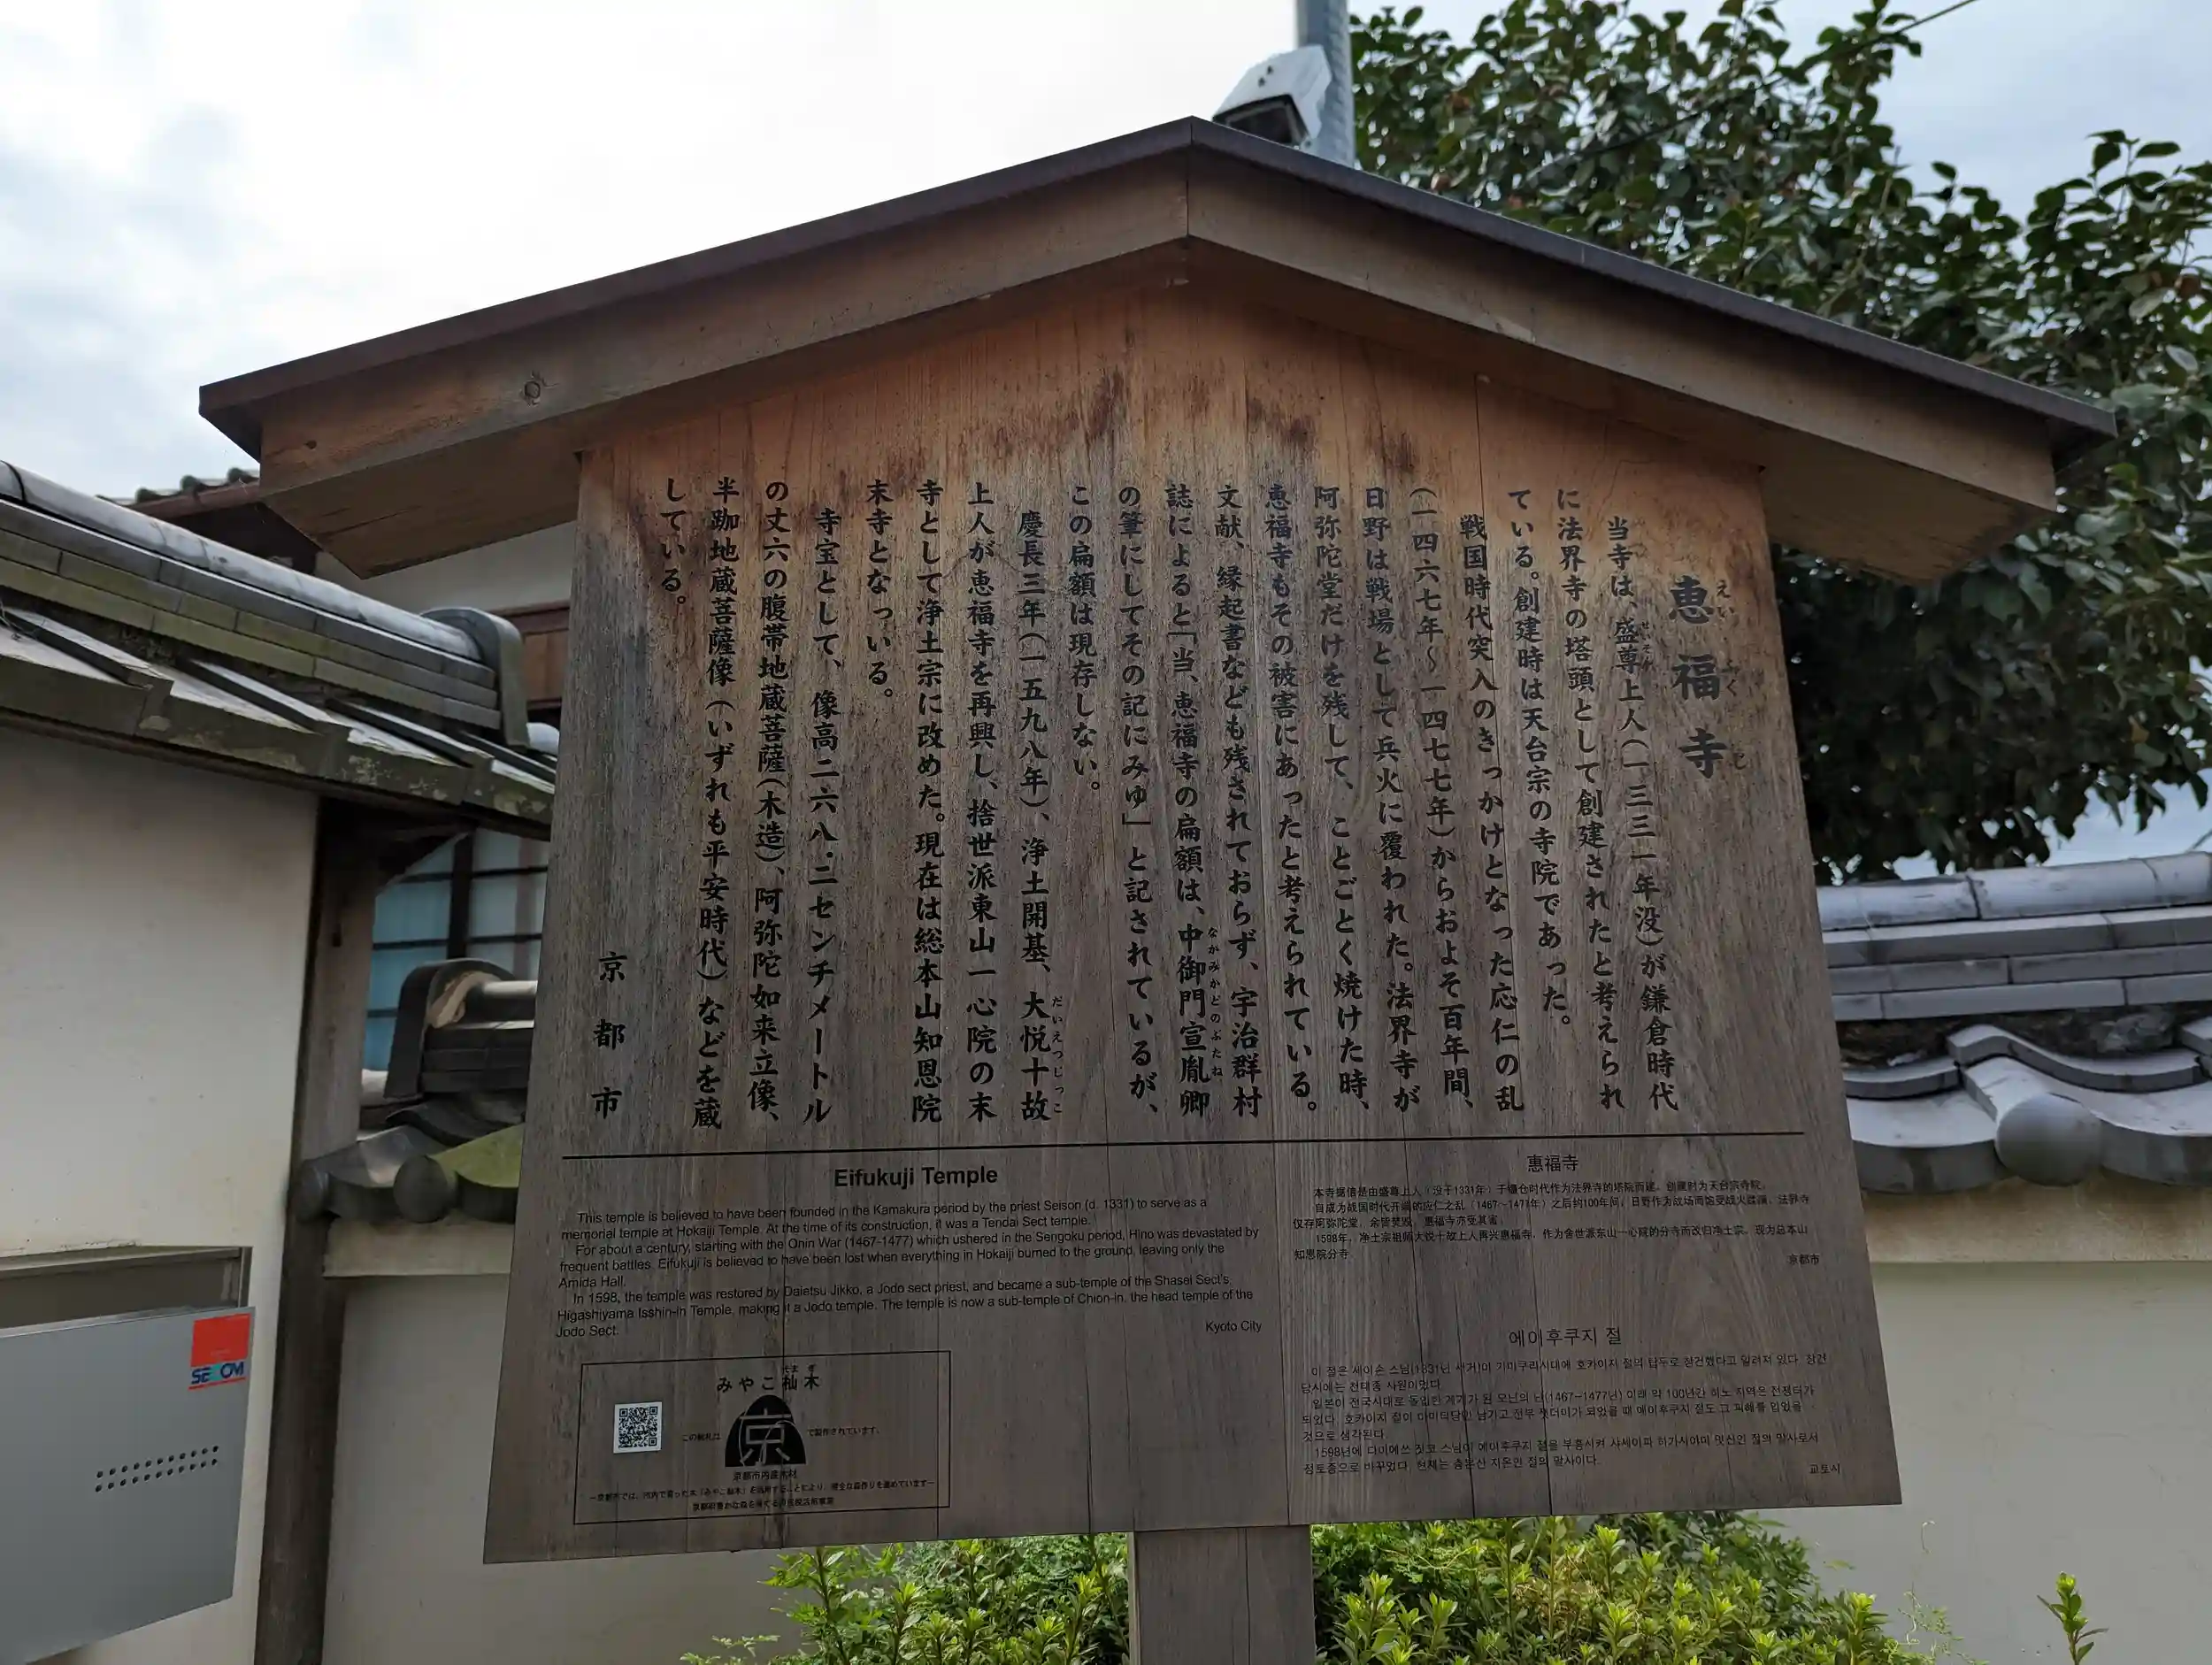 恵福寺
えいふくじ
当寺は、盛尊上人(一三三一年没)が鎌倉時代
に法界寺の塔頭として創建されたと考えられ
ている。創建時は天台宗の寺院であった。
戦国時代突入のきっかけとなった応仁の乱
(一四六七年~一四七七年)からおよそ百年間、
日野は戦場として兵火に覆われた。法界寺が
阿弥陀堂だけを残して、ことごとく焼けた時、
恵福寺もその被害にあったと考えられている。
文献、縁起書なども残されておらず、宇治群村
誌によると「当、恵福寺の扁額は、中御門宣胤卿
なかみかどのぶたね
の筆にしてその記にみゆ」と記されているが、
この扁額は現存しない。
慶長三年(一五九八年)、浄土開基、大悦十故
だいえつじっこ
上人が恵福寺を再興し、捨世派東山一心院の末
寺として浄土宗に改めた。現在は総本山知恩院
末寺となっいる。
寺宝として、像高二六八・二センチメートル
の丈六の腹帯地蔵菩薩(木造)、阿弥陀如来立像、
半跏地蔵菩薩像(いずれも平安時代)などを蔵
している。
京都市
Eifukuji Temple
This temple is believed to have been founded in the Kamakura period by the priest Seison (d. 1331) to serve as a
memorial temple at Hokaiji Temple. At the time of its construction, it was a Tendai Sect temple.
For about a century, starting with the Onin War (1467-1477) which ushered in the Sengoku period, Hino was devastated by
frequent battles. Eifukuji is believed to have been lost when everything in Hokaiji burned to the ground, leaving only the
Amida Hall.
In 1598, the temple was restored by Daietsu Jikko, a Jodo sect priest, and became a sub-temple of the Shasei Sect's
Higashiyama Isshin-in Temple, making it a Jodo temple. The temple is now a sub-temple of Chion-in, the head temple of the
Jodo Sect.
Kyoto City
惠福寺
本寺据信是由盛尊上人(没于1331年)于镰仓时代作为法界寺的塔院而建,创建时为天台宗寺院。
自成为战国时代开端的应仁之乱(1467~1477年)之后约100年间,日野作为战场而饱受战火蹂躏。法界寺
仅存阿弥陀堂,余皆焚毁,惠福寺亦受其害。
1598年,净土宗祖师大悦十故上人再兴惠福寺,作为舍世派东山一心院的分寺而改归净土宗。现为总本山
知恩院分寺
京都市
에이후쿠지 절
이 절은 세이손 스님(1331년 사거)이 가마쿠라시대에 호카이지 절의 탑두로 창건했다고 알려져 있다. 창건
당시에는 천태종 사원이었다.
일본이 전국시대로 돌입한 계기가 된 오닌의 난(1467~1477년) 이래 약 100년간 히노 지역은 전쟁터가
되었다. 호카이지 절이 아미타당만 남기고 전부 잿더미가 되었을 때 에이후쿠지 절도 그 피해를 입었을
것으로 생각된다.
1598년에 다이에쓰 짓코 스님이 에이후쿠지 절을 부흥시켜 샤세이파 히가시야마 잇신인 절의 말사로서
정토종으로 바꾸었다. 현재는 총본산 지온인 절의 말사이다.
교토시
みやこ杣木
そまぎ
この制札は 京 で製作されています。
京都市内産木材
SECOM